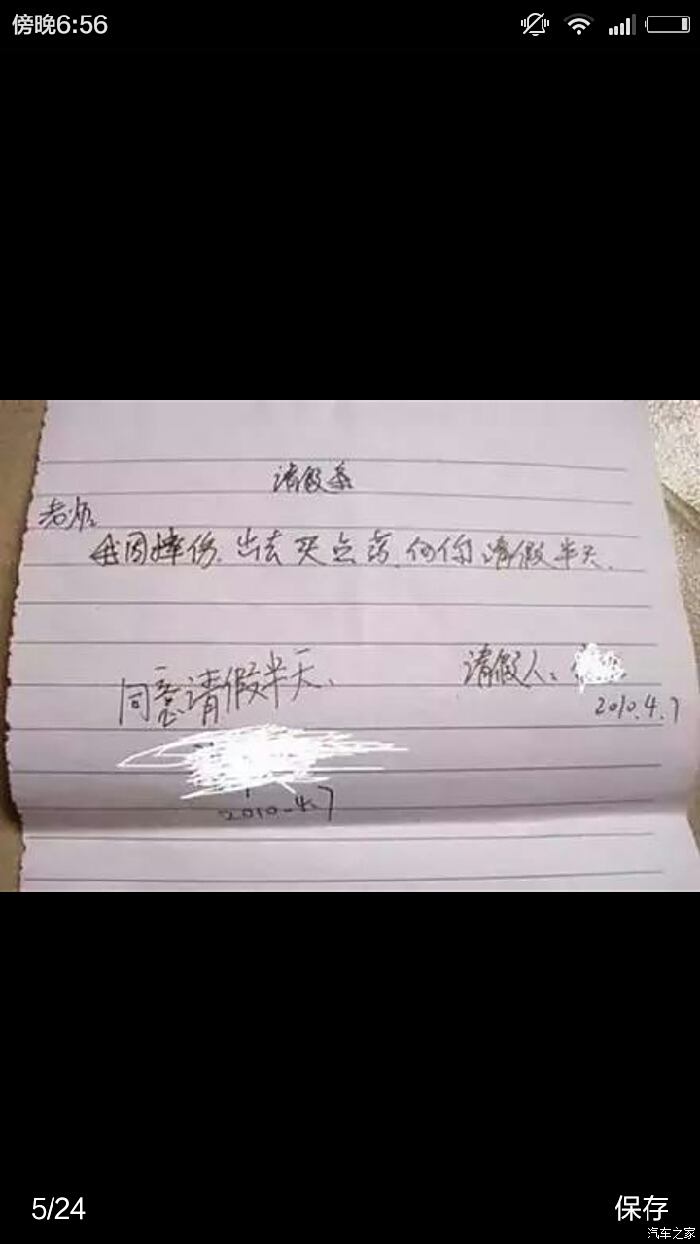 傍晚6:56
请假条
老师:
我因摔伤.出去买点药.向你请假半天.
同意请假半天.
请假人:
2010.4.7
2010.4.7
5/24
保存
汽车之家